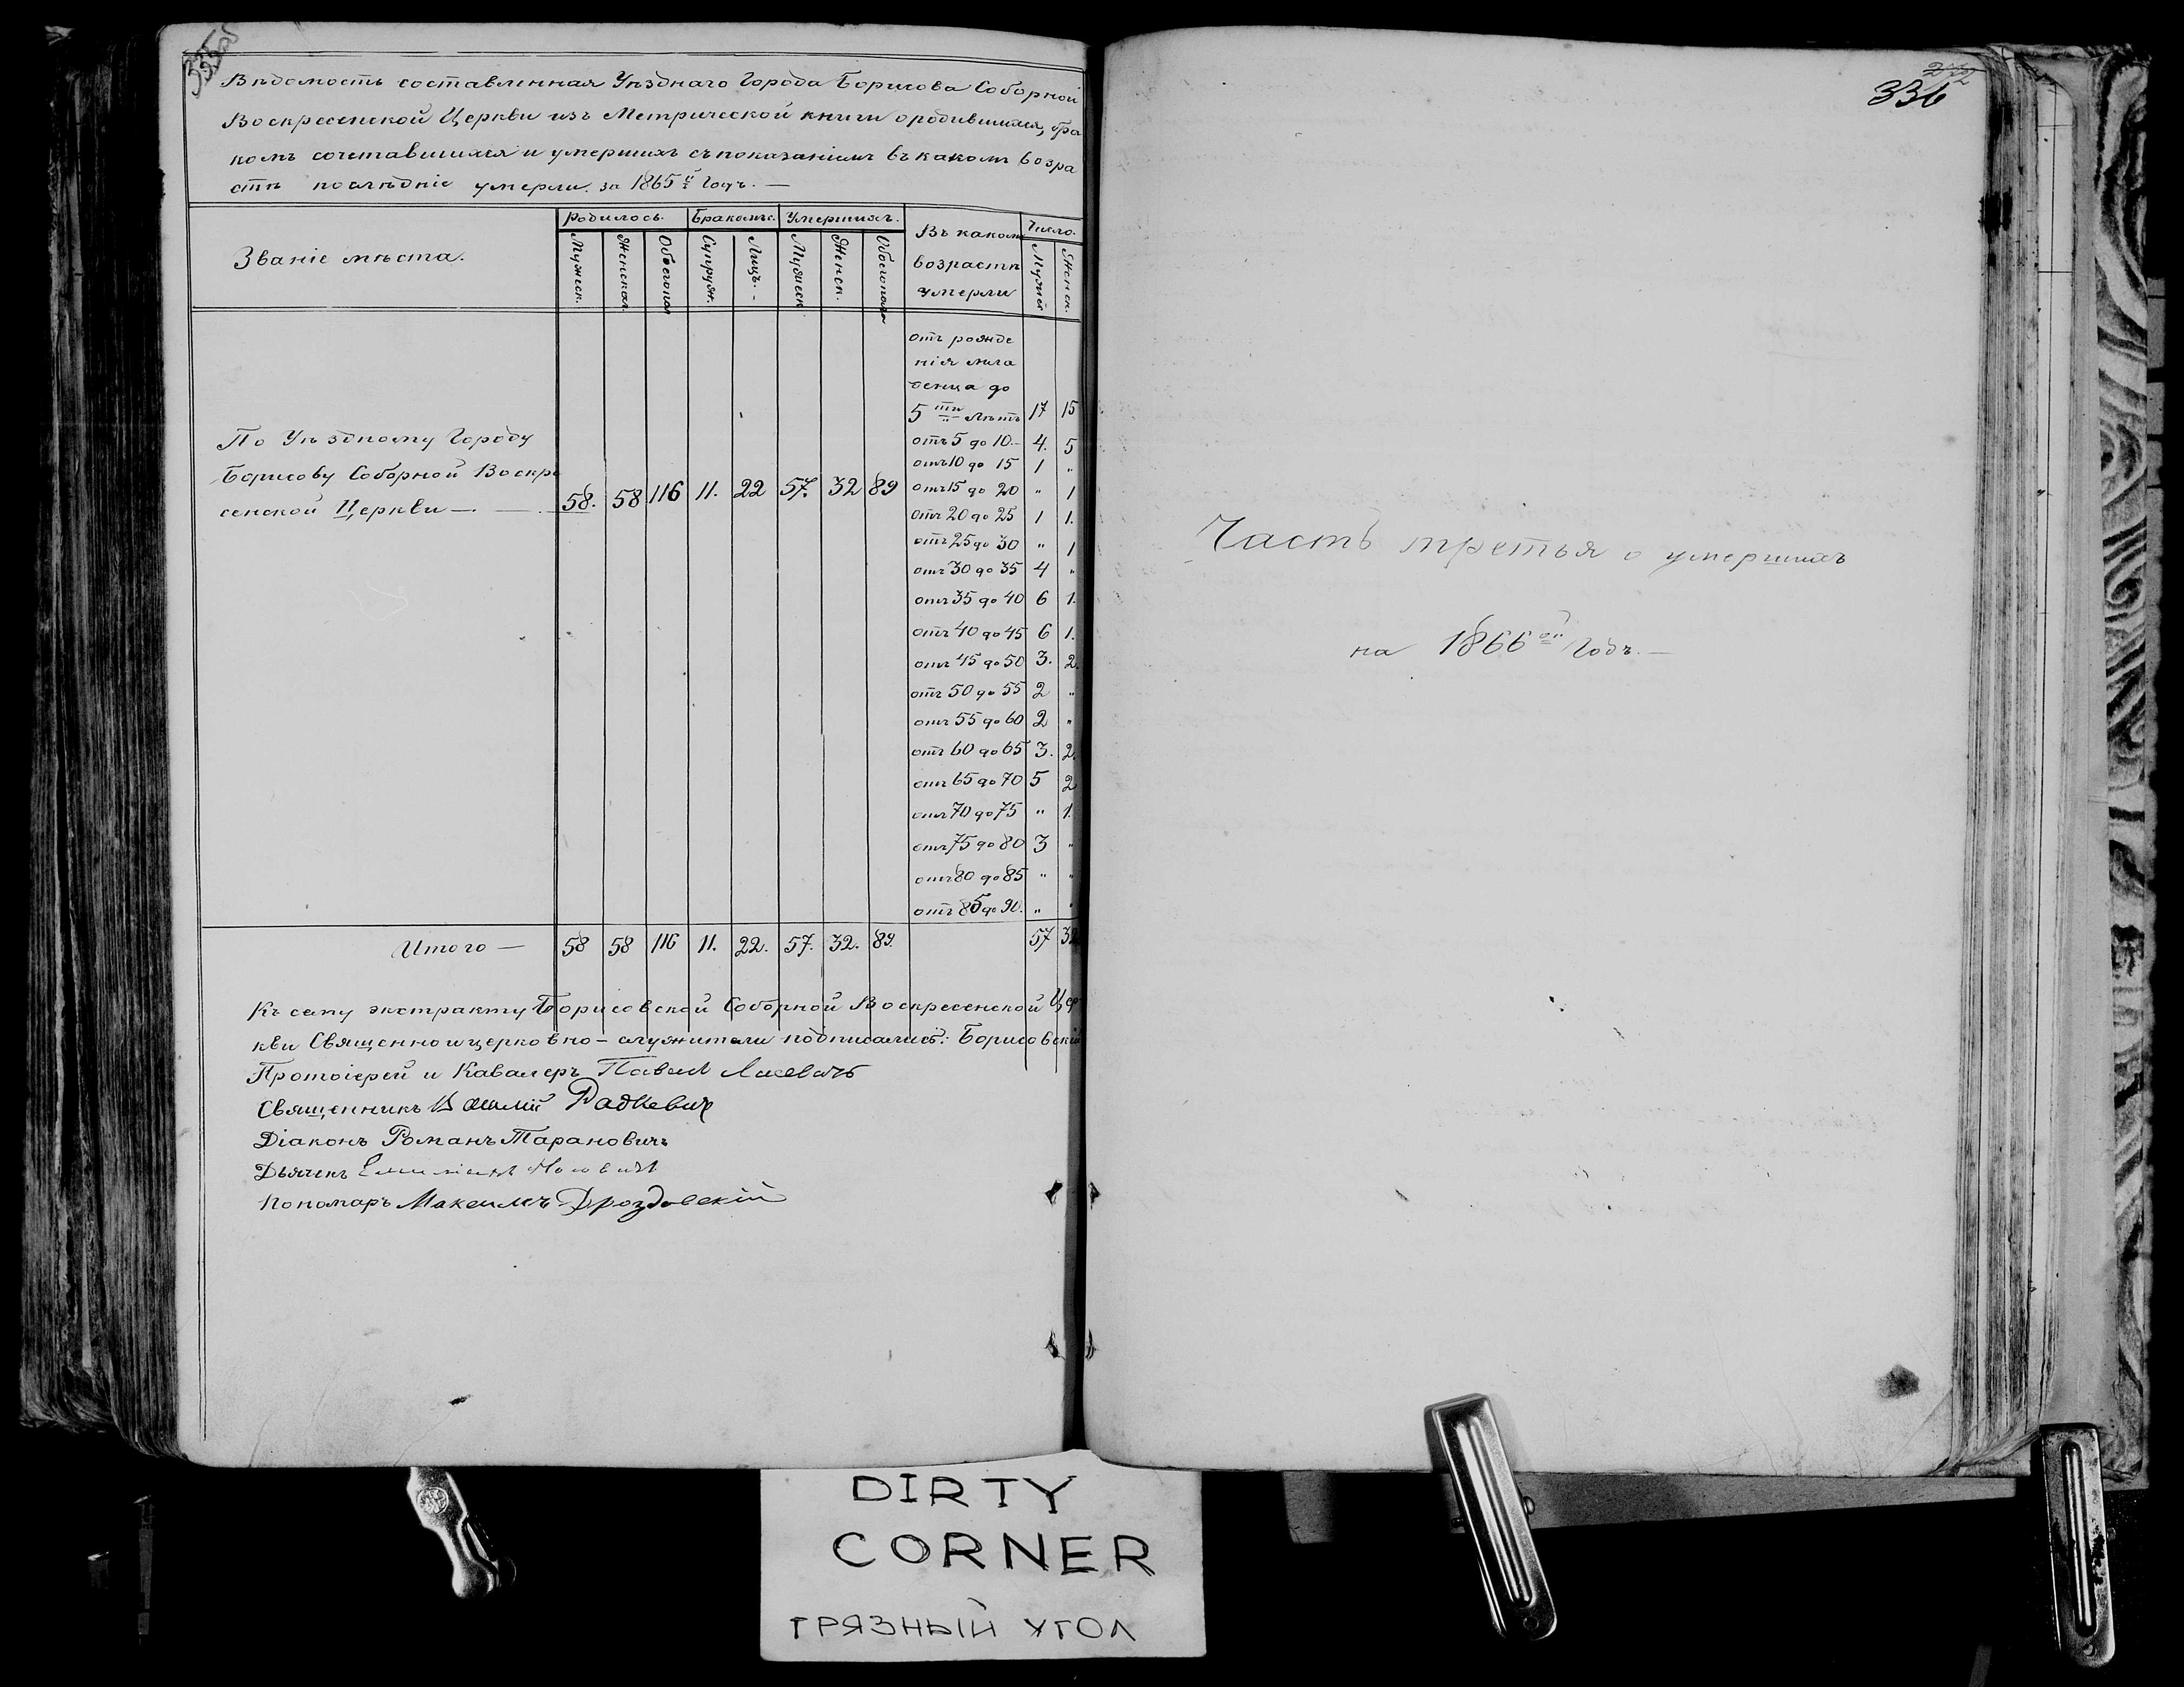 335об
Вѣдомость составленная Уѣзднаго Города Борисова Соборной
Воскресенской Церкви изъ Метрической книги о родившихся, бра
комъ сочетавшихся и умершихъ съ показаніемъ въ какомъ возра
стѣ послѣдніе умерли за 1865й Годъ. —
Званіе мѣста. Родилось. Бракомъ. Умершихъ. Въ какомъ возрастѣ умерли Число.
Мужеск. Женскаго Обоего пола Супруж. Лицъ. Мужеск. Женск. Обоего пола Мужск. Женск.
отъ рожде
нія мла
денца до
5ти лѣтъ 17 15
отъ 5 до 10. 4. 5
отъ 10 до 15 1 "
отъ 15 до 20 " 1
отъ 20 до 25 1 1.
отъ 25 до 30 " 1
отъ 30 до 35 4 "
отъ 35 до 40 6 1.
отъ 40 до 45 6 1.
отъ 45 до 50 3. 2.
отъ 50 до 55 2 "
отъ 55 до 60 2 "
отъ 60 до 65 3. 2.
отъ 65 до 70 5 2
отъ 70 до 75 " 1.
отъ 75 до 80 3 "
отъ 80 до 85 " "
отъ 85 до 90. " "
По Уѣздному Городу
Борисову Соборной Воскре
сенской Церкви — 58. 58 116 11. 22 57. 32 89
Итого — 58 58 116 11. 22. 57. 32. 89. 57 32
Къ сему экстракту Борисовской Соборной Воскресенской Цер
кви Священно и церковно-служители подписались: Борисовскій
Протоіерей и Кавалеръ Павелъ
Священникъ Василій Радкевич
Діаконъ Романъ Тарановичъ
Дьячекъ
Пономарь Максимъ Дроздовскій
272
336
Часть третья о умершихъ
на 1866ой Годъ. —
DIRTY
CORNER
ГРЯЗНЫЙ УГОЛ